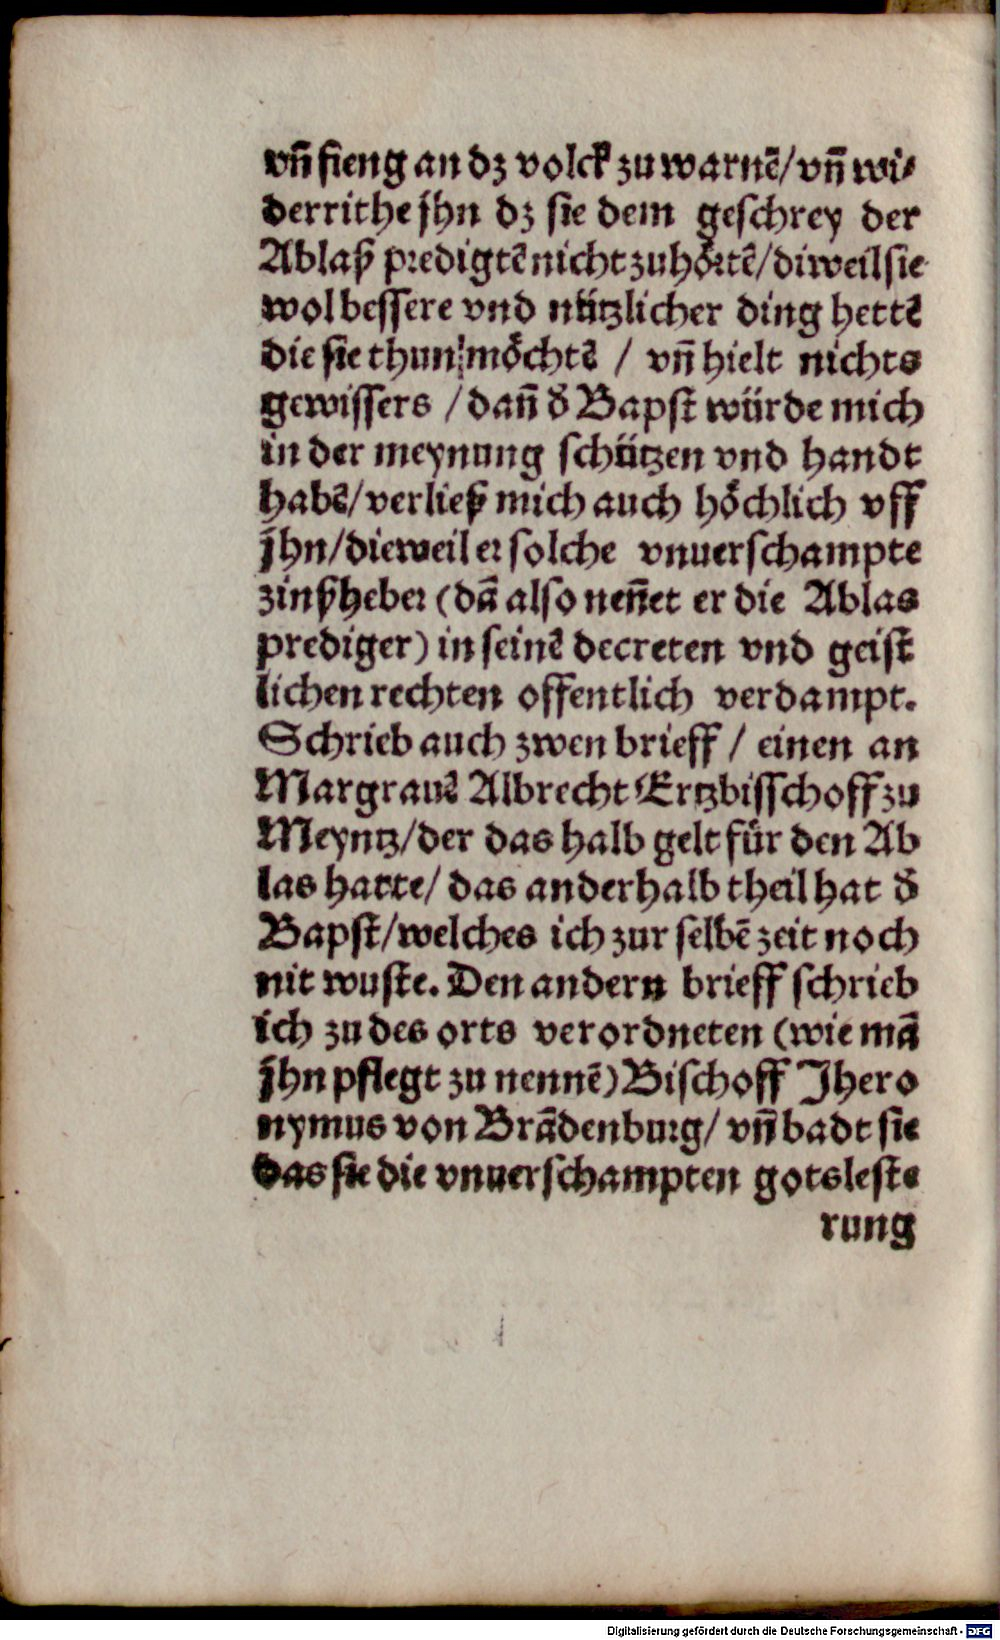 vñ fieng an dz volck zu warnē/ vñ wi⸗
derrithe jhn dz sie dem geschrey der
Ablaß predigtē nicht zuhörtē/ diweil sie
wol bessere vnd nützlicher ding hettē
die sie thun möchtē / vñ hielt nichts
gewissers / dañ d̕ Bapst würde mich
in der meynung schützen vnd handt
habē/ verließ mich auch höchlich vff
jhn/ dieweil er solche vnuerschampte
zinßheber (dā also neñet er die Ablas
prediger) in seinē decreten vnd geist
lichen rechten offentlich verdampt.
Schrieb auch zwen brieff / einen an
Margrauē Albrecht Ertzbisschoff zu
Meyntz/ der das halb gelt für den Ab
las hatte/ das ander halb theil hat d̕
Bapst/ welches ich zur selbē zeit noch
nit wuste. Den andern brieff schrieb
ich zu des orts verordneten (wie mā
jhn pflegt zu nennē) Bischoff Jhero
nymus von Brādenburg/ vñ badt sie
das sie die vnuerschampten gotsleste
rung
Digitalisierung gefördert durch die Deutsche Forschungsgemeinschaft - DFG